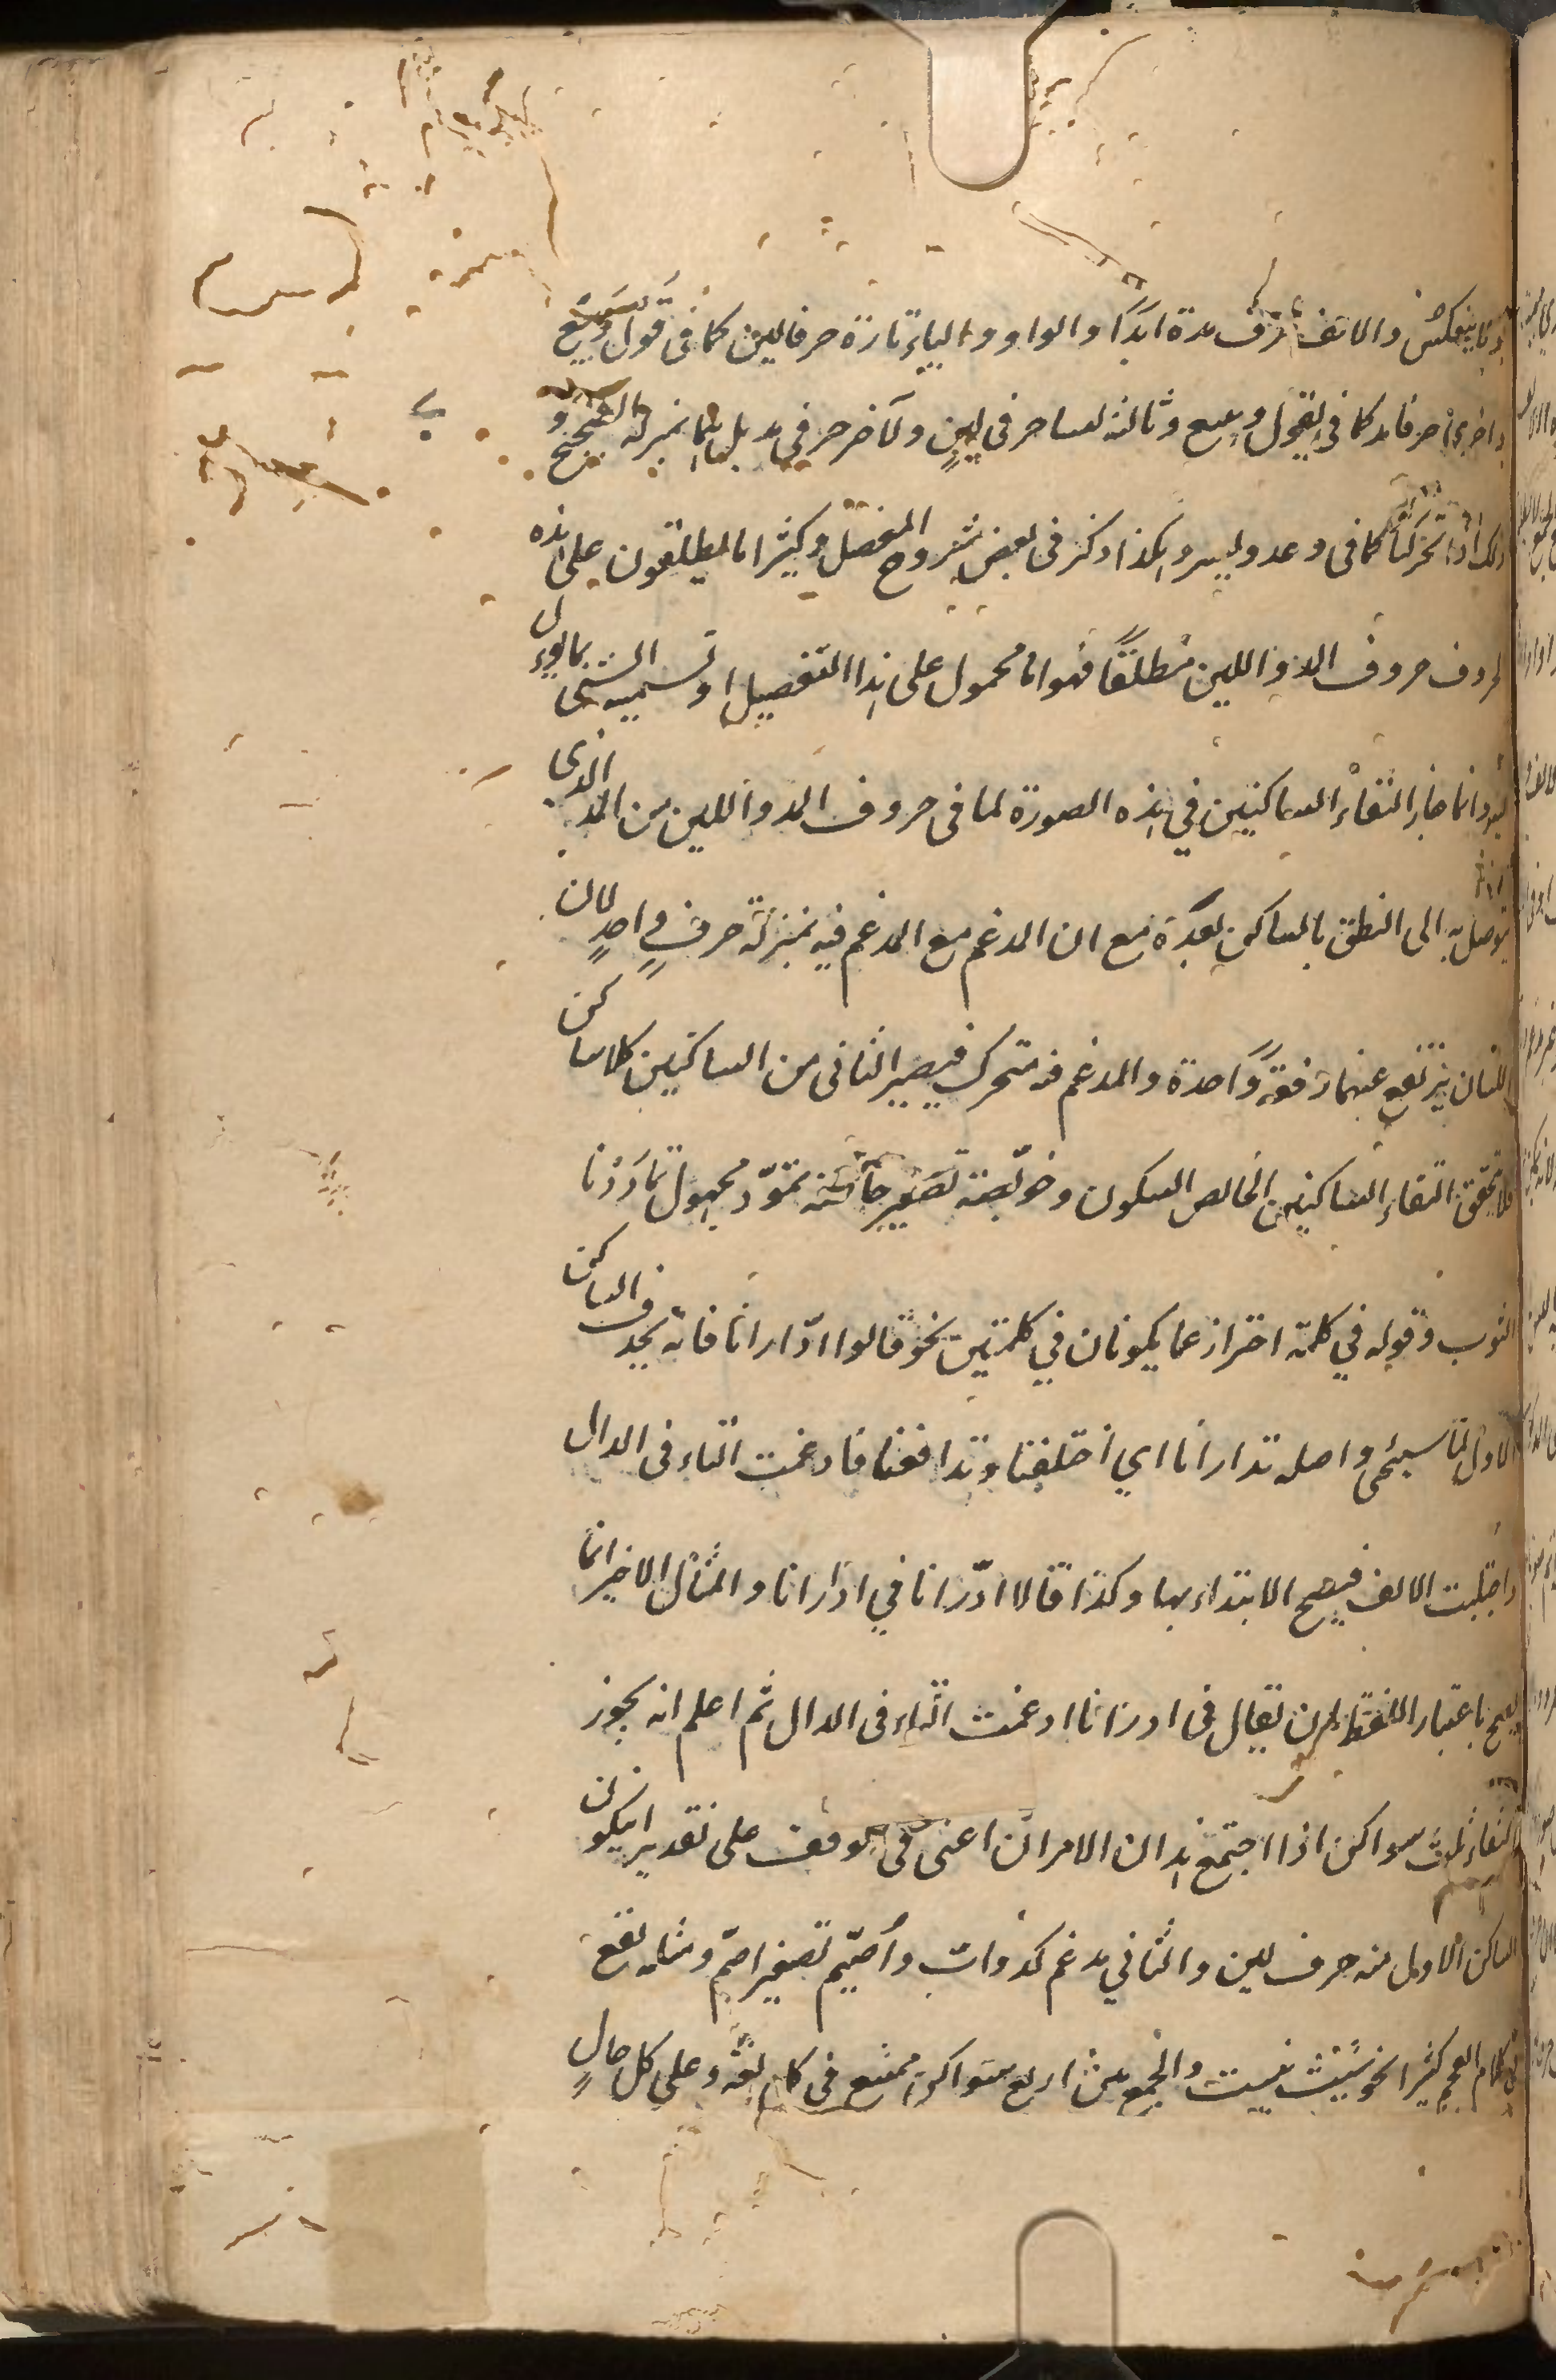 ولا ينعكس والالف حرف مدة ابدًا والواو والياء تارة حرفا لين كما في قول وبيع
واخرى حرفا مد كما في يقول وبيع وثالثه ليسا حرفي لينٍ ولا حرفي مد بل هما بمنزلة الصحيح و
ذلك اذا تحركتا كما في وعد ويسر وهكذا ذكر في بعض شروح المفصل وكثيرا ما يطلقون على هذه
الحروف حروف المد واللين مطلقًا فهو اما محمول على هذا التفصيل او تسمية الشي بما يؤل
اليه وانما جاز التقاءُ الساكنين في هذه الصورة لما في حروف المد واللين من المد الذي
يتوصل به الى النطق بالساكن بعده مع ان المدغم مع المدغم فيه بمنزلة حرفٍ واحدٍ لان
اللسان يرتفع عنهما دفعةً واحدة والمدغم فيه متحرك فيصير الثاني من الساكنين كلا ساكن
فلا يتحقق التقاء الساكنين الخالص السكون وخويصة تصغير خاصة تمودّ مجهول تمادَدْنا
الثوب وقوله في كلمة احتراز عما يكونان في كلمتين نحو قالوا ادّارانا فانه يحذف الساكن
الاول لما سيجئ واصله تدارانا اي اختلفنا وتدافعنا فادغمت التاء في الدال
واجتلبت الالف فيصح الابتداء بها وكذا قالا ادّرانا في ادّارانا والمثال الاخير انما
يصح باعتبار اللفظ لمن يقال في ادرانا ادغمت التاء في الدال ثم اعلم انه يجوز
التقاء ثلاث سواكن اذا اجتمع هذان الامران اعنى في الوقف على تقدير ان يكون
الساكن الاول منه حرف لين والثاني مدغم كدوابّ وأُصيّم تصغير اصمّ ومثله يقع
في كلام العجم كثيرا نحو نيست والجمع بين اربع سواكن ممتنع في كل لغة وعلى كل حالٍ